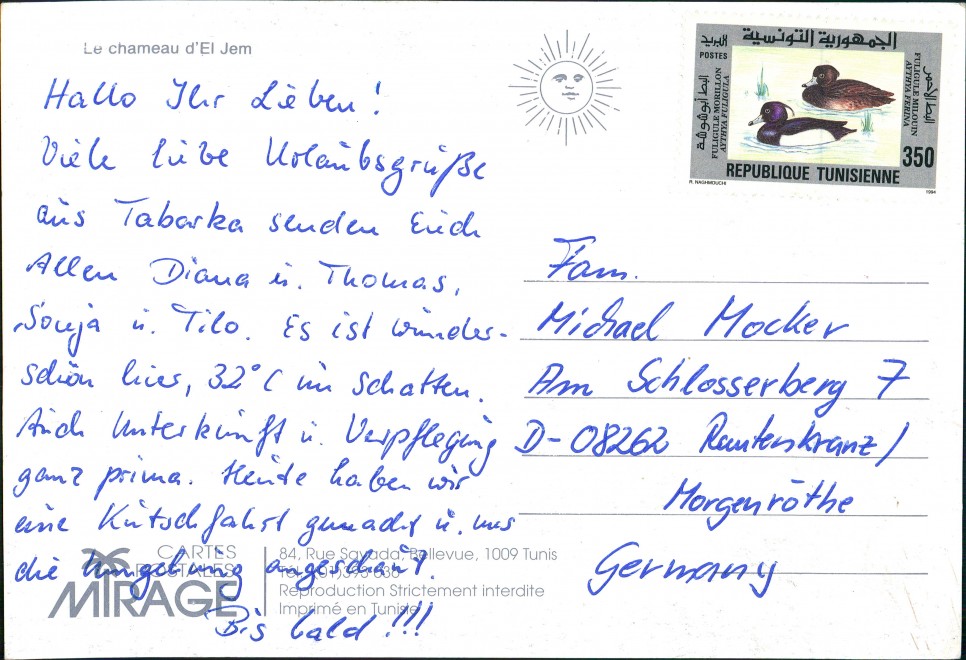 Le chameau d'El Jem
Hallo Ihr Lieben!
Viele liebe Urlaubsgrüße
aus Tabarka senden Euch
Allen Diana u. Thomas,
Sonja u. Tilo. Es ist wunder-
schön hier, 32°C im Schatten.
Auch Unterkunft u. Verpflegung
ganz prima. Heute haben wir
eine Kutschfahrt gemacht u. uns
die Umgebung angeschaut.
Bis bald!!!
الجمهورية التونسية
البريد
POSTES
البط أبوشوشة
FULIGULE MORILLON
AYTHYA FULIGULA
البط الأحمر
FULIGULE MILOUIN
AYTHYA FERINA
350
REPUBLIQUE TUNISIENNE
R. NAGHMOUCHI
1994
Fam.
Michael Mocker
Am Schlosserberg 7
D-08262 Rautenkranz/
Morgenröthe
Germany
CARTES
POSTALES
MIRAGE
84, Rue Sayada, Bellevue, 1009 Tunis
Reproduction Strictement interdite
Imprimé en Tunisie